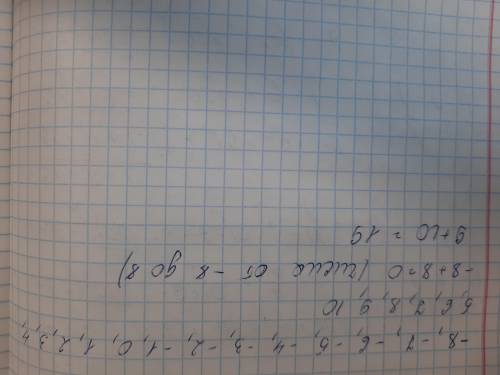 -8, -7, -6, -5, -4, -3, -2, -1, 0, 1, 2, 3, 4,
5, 6, 7, 8, 9, 10
-8+8=0 (числа от -8 до 8)
9+10 = 19